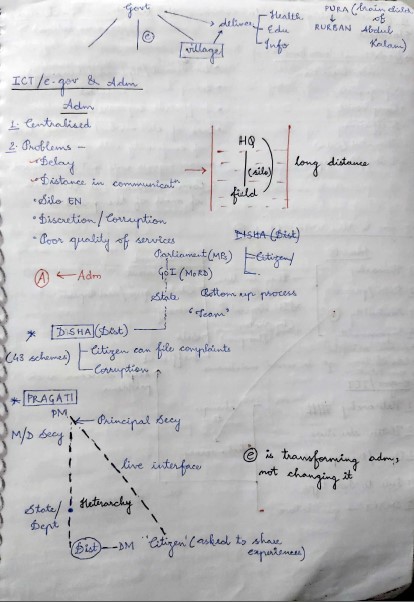 Govt
→ deliver
Health
Edu
Info
PURA (brain child of Abdul Kalam)
→ RURBAN
e
village
ICT/e-gov & Adm
Adm
1. Centralised
2. Problems -
Delay
Distance in communicatn
Silo EN
Discretion/Corruption
Poor quality of services
HQ
(silo)
field
long distance
DISHA (Dist)
Citizen/
Parliament (MPs)
GoI (MoRD)
State
Bottom up process
"Team"
A ← Adm
* DISHA (Dist)
(43 schemes)
Citizen can file complaints
Corruption
* PRAGATI
PM
Principal Secy
M/D Secy
live interface
State/
Dept
Heterarchy
Dist — DM "Citizen" (asked to share
experiences)
e is transforming adm,
not changing it